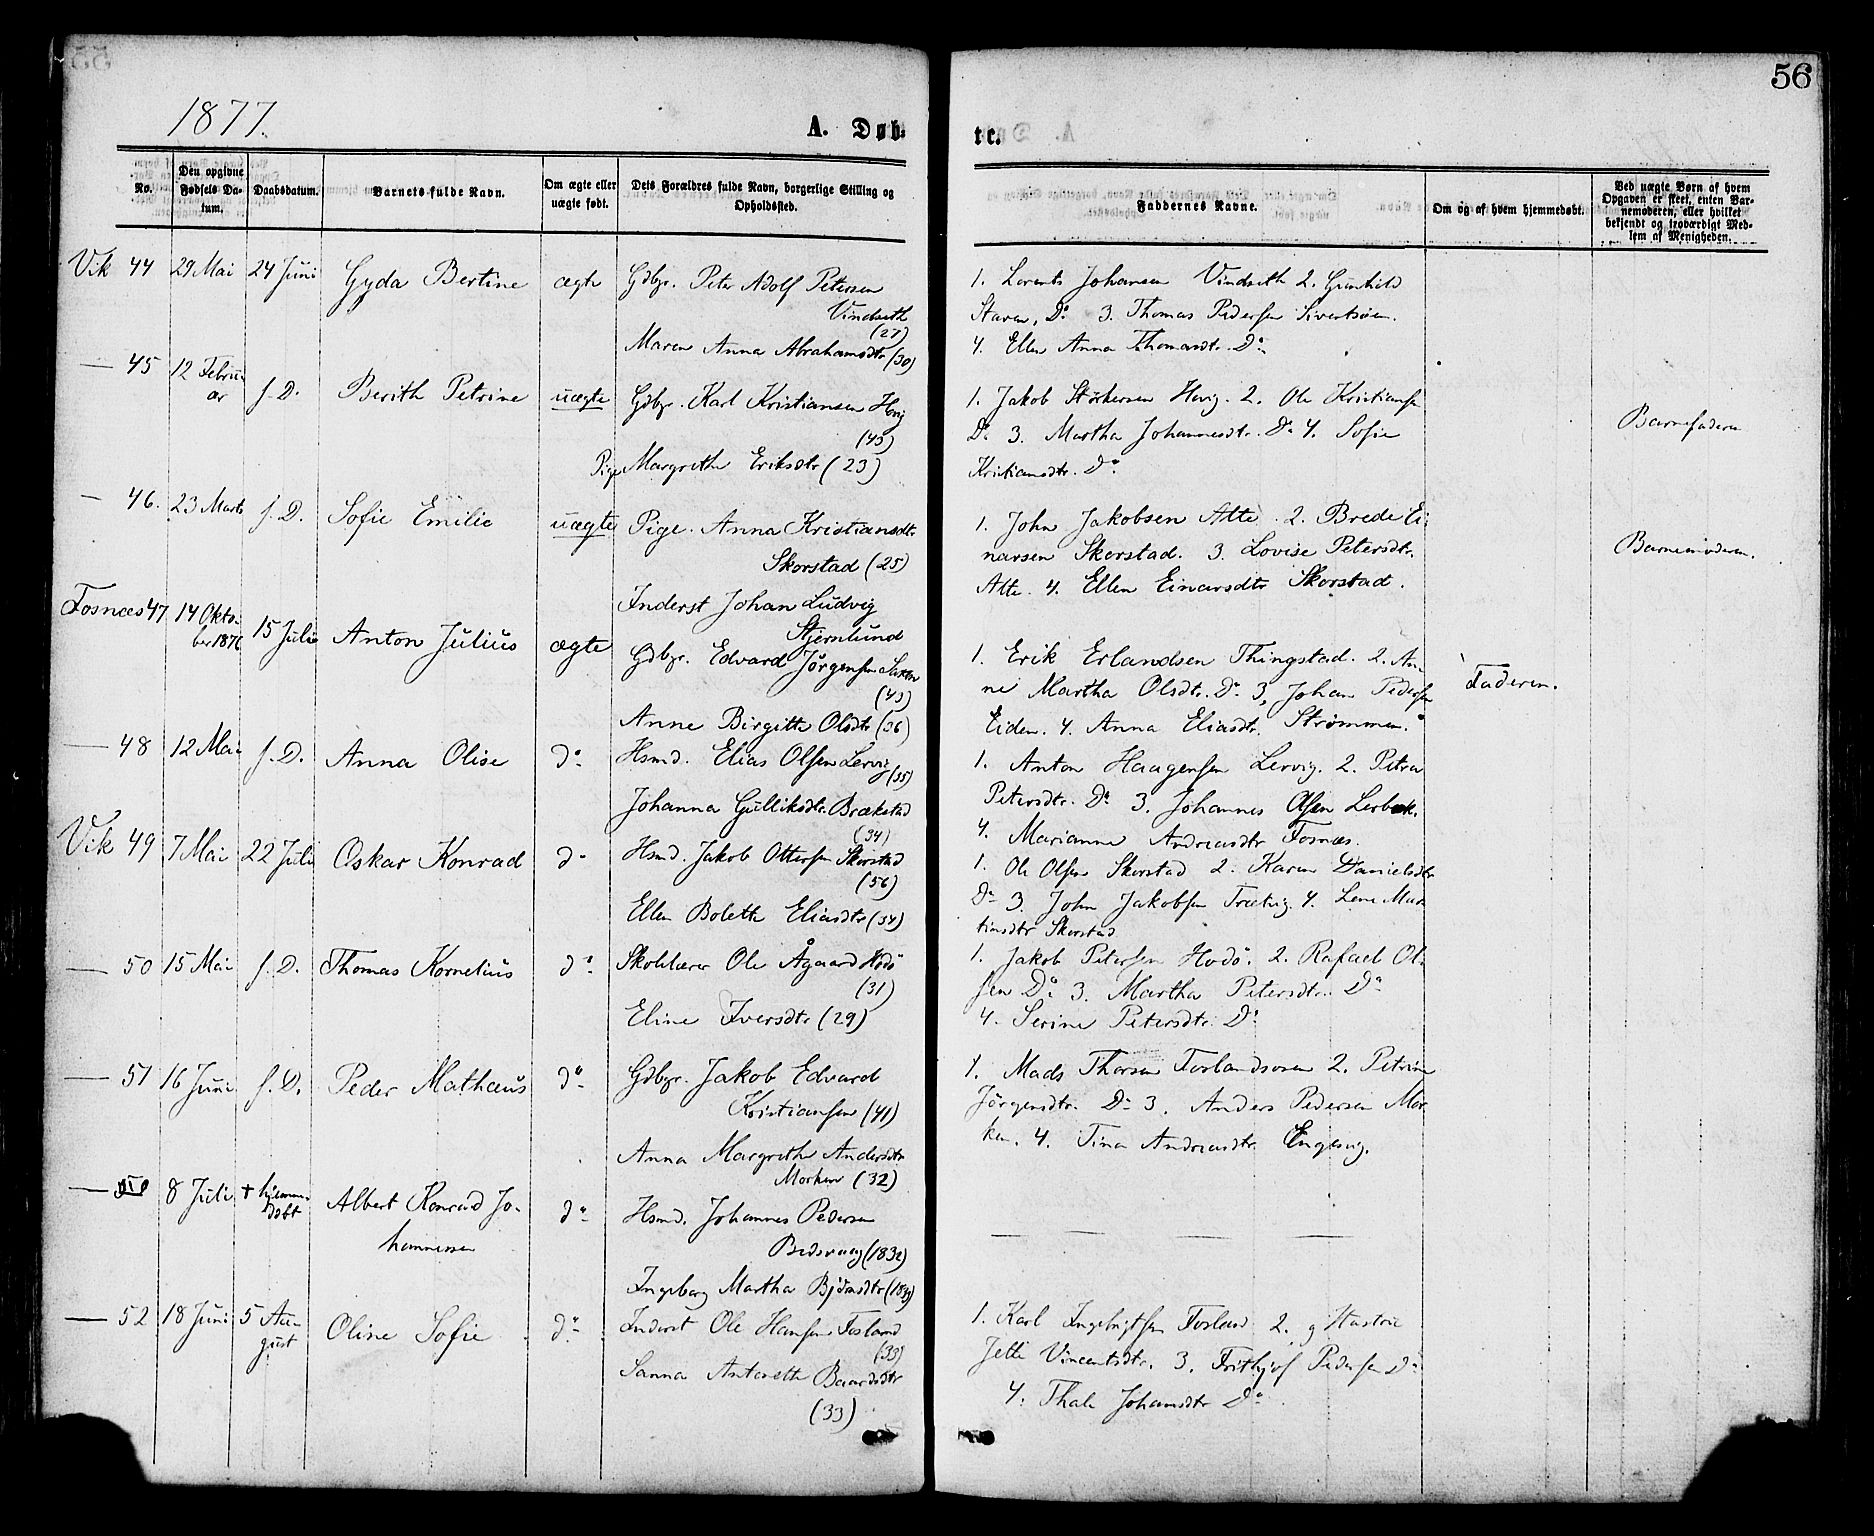 56
1877.
A. Døb-
te.
No.
Den opgivne Fødsels Da-tum.
Daabsdatum.
Barnets fulde Navn.
Om ægte eller uægte født.
Dets Forældres fulde Navn, borgerlige Stilling og Opholdssted.
Faddernes Navne.
Om og af hvem hjemmedøbt.
Ved uægte Børn af hvem Opgaven er skeet, enten Bar-nemoderen, eller hvilket bekjendt og troværdigt Med-lem af Menigheden.
Vik 44 29 Mai 24 Juni Gyda Bertine ægte Gdbgr. Peter Adolf Petersen
Vindseth
(27)
Maren Anna Abrahamsdtr (30)
1. Lorents Johansen Vindseth 2. Gunhild
Staven, Do 3. Thomas Pedersen Sivertsöen.
4. Ellen Anna Thomasdtr. Do
— 45 12 Febru-
ar
s. D. Berith Petrine uægte Gdbgr. Karl Kristiansen Hovig
(45)
Pige Margrethe Eriksdtr (23)
1. Jakob Störkersen Hovig. 2. Ole Kristiansen
Do 3. Martha Johannesdtr. Do 4. Sofie
Kristiansdtr. Do
Barnefaderen
— 46. 23 Marts s. D. Sofie Emilie uægte Pige. Anna Kristiansdtr.
Skorstad (25)
Inderst Johan Ludvig
Stjernlund
1. John Jakobsen Alte. 2. Brede Ei-
narsen Skorstad. 3. Lovise Petersdtr.
Alte. 4. Ellen Einarsdtr Skorstad.
Barnemoderen.
Fosnæs 47 14 Okto-
ber 1876
15 Juli Anton Julius ægte Gdbgr. Edvard Jörgensen
(43)
Anne Birgitte Olsdtr (36)
1. Erik Erlandsen Thingstad. 2. An-
ne Martha Olsdtr. Do 3, Johan Pedersen
Eiden. 4. Anna Eliasdtr. Strømmen.
Faderen.
— 48 12 Mai s. D. Anna Olise do Hsmd. Elias Olsen Lervig
(35)
Johanna Gulliksdtr. Brækstad
(34)
1. Anton Haagensen Lervig. 2. Petra
Petersdtr. Do 3. Johannes Olsen
4. Marianne Andreasdtr Fosnæs.
Vik 49 7 Mai 22 Juli Oskar Konrad do Hsmd. Jakob Ottersen Skorstad
(56)
Ellen Bolette Eliasdtr (34)
1. Ole Olsen Skorstad 2. Karen Danielsdtr
Do 3. John Jakobsen 4. Lene Mar-
tinsdtr Skorstad
— 50 15 Mai s. D. Thomas Kornelius do Skolelærer Ole Ågaard Hodö
(31)
Eline Iversdtr (29)
1. Jakob Petersen Hodö. 2. Rafael Ol-
sen Do 3. Martha Petersdtr. Do
4. Serine Petersdtr. Do
— 51 16 Juni s. D. Peder Mathæus do Gdbgr. Jakob Edvard
Kristiansen (41)
Anna Margrethe Andersdtr
Morken (32)
1. Mads Thorsen Foslandsosen 2. Petrine
Jörgensdtr. Do 3. Anders Pedersen Mor-
ken. 4. Tina Andreasdtr Engesvig.
— 8 Juli + hjemme-
døbt
Albert Konrad Jo-
hannessen
do Hsmd. Johannes Pedersen
(1832)
Ingeborg Martha Björnsdtr
— 52 18 Juni 5 Au-
gust
Oline Sofie do Inderst Ole Hansen Fosland
(33)
Sanna Antonette Baardsdtr
(33)
1. Karl Ingebrigtsen Fosland 2. g Hustru
Jette Vincentsdtr. 3. Frithjof Pedersen Do
4. Thale Johansdtr Do